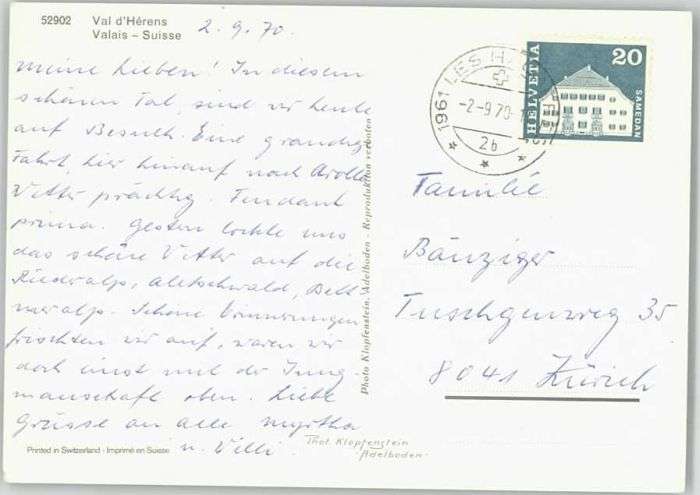 52902 Val d'Hérens
Valais – Suisse
2.9.70.
meine Lieben! In diesem
schönen Tal, sind wir heute
auf Besuch. Eine grandiose
Fahrt, hier hinauf nach Arolla
Wetter prächtig. Fendant
prima. Gestern lockte uns
das schöne Wetter auf die
Riederalp, Aletschwald, Bett
meralp. Schöne Erinnerungen
frischten wir auf, waren wir
doch einst mit der Jung-
manschaft oben. Liebe
Grüsse an alle Myrtha
u. Willi
Printed in Switzerland - Imprimé en Suisse
Photo Klopfenstein, Adelboden - Reproduktion verboten
Phot. Klopfenstein
Adelboden
1961 LES HA
-2-9.70-
2b
HELVETIA
20
SAMEDAN
Familie
Bänziger
Tuschgenweg 35
8041 Zürich